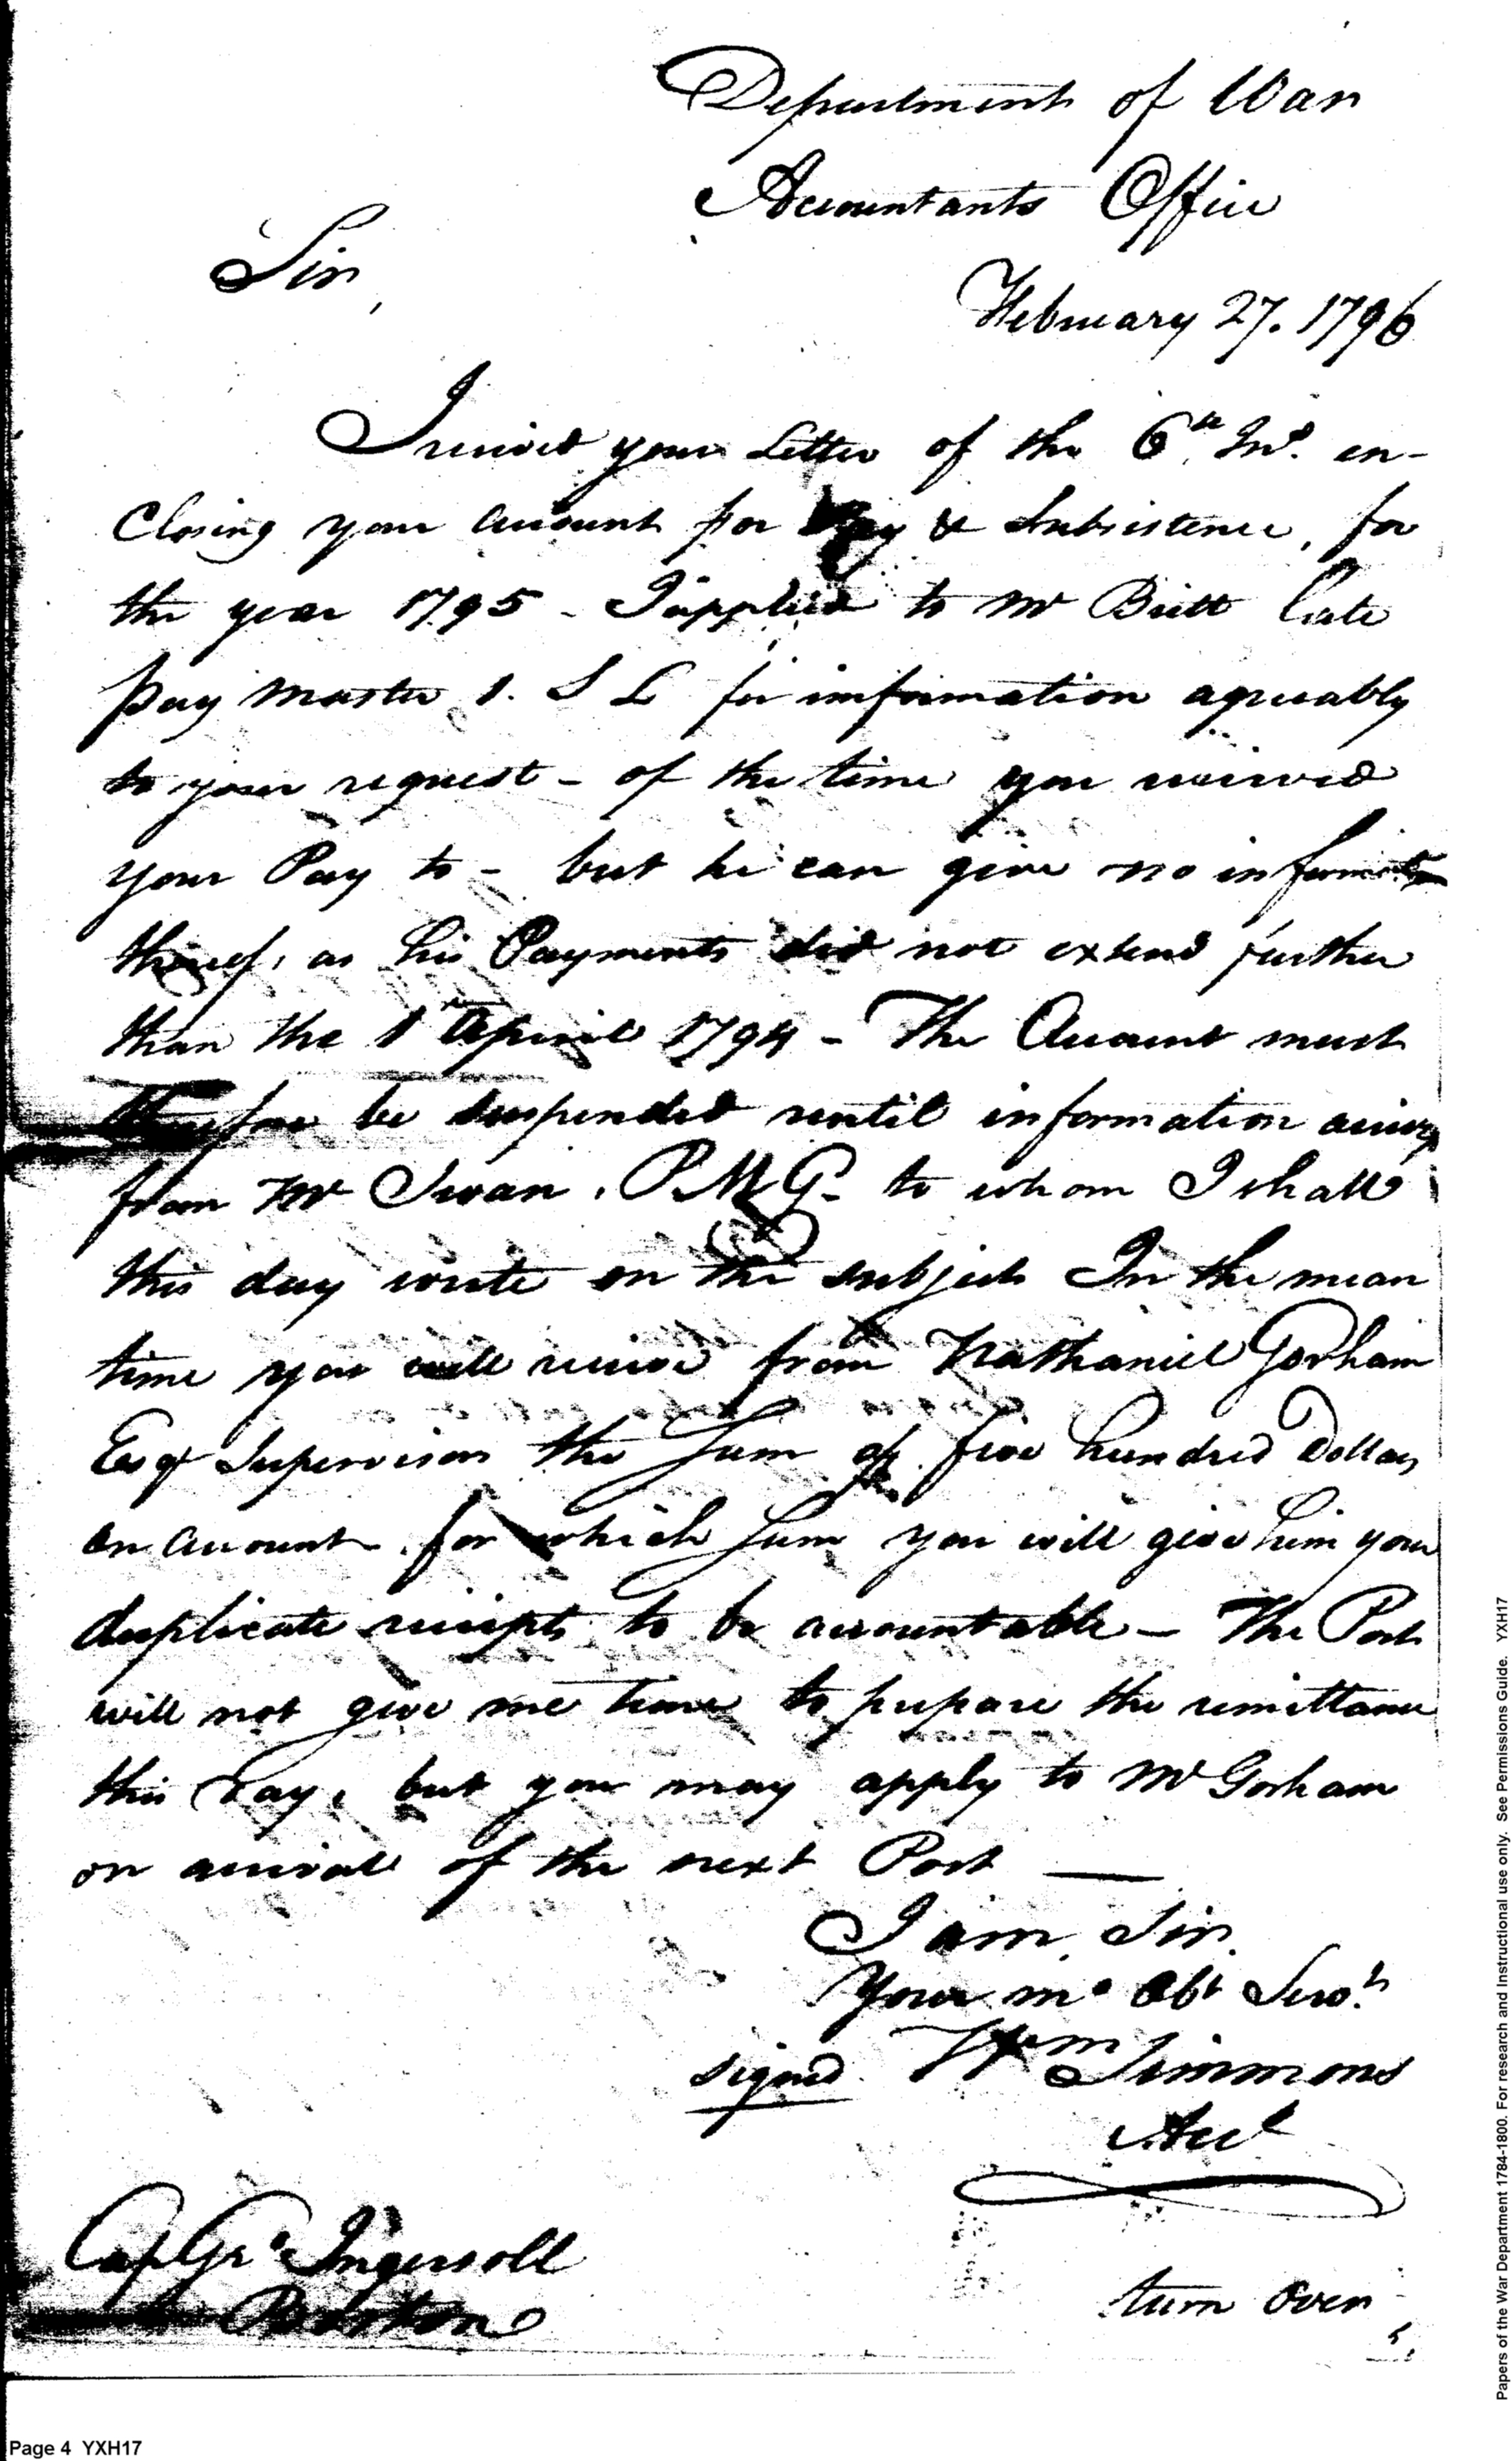 Department of War
Accountants Office
Sir,
February 27. 1796
I received your Letter of the 6th Inst. en-
closing your account for Pay & Subsistence, for
the year 1795 - I applied to Mr Britt late
Pay Master 1. S L for information agreeably
to your request - of the time you received
your Pay to - but he can give no information
thereof, as his Payments did not extend further
than the 1st April 1794 - The Account must
therefore be suspended until information arives
from Mr Swan. P.M.G. to whom I shall
this day write on the subject In the mean
time you will receive from Nathaniel Gorham
Esqr Supervisor the Sum of five hundred Dollars
on account for which Sum you will give him your
duplicate receipts to be accountable - The Post
will not give me time to prepare the remittance
this Day, but you may apply to Mr Gorham
on arrival of the next Post —
I am, Sir.
Your mo Obt Servt
signed Wm Simmons
Acct
Cap Go Ingersoll
Boston
turn over
Page 4 YXH17
Papers of the War Department 1784-1800. For research and Instructional use only. See Permissions Guide. YXH17